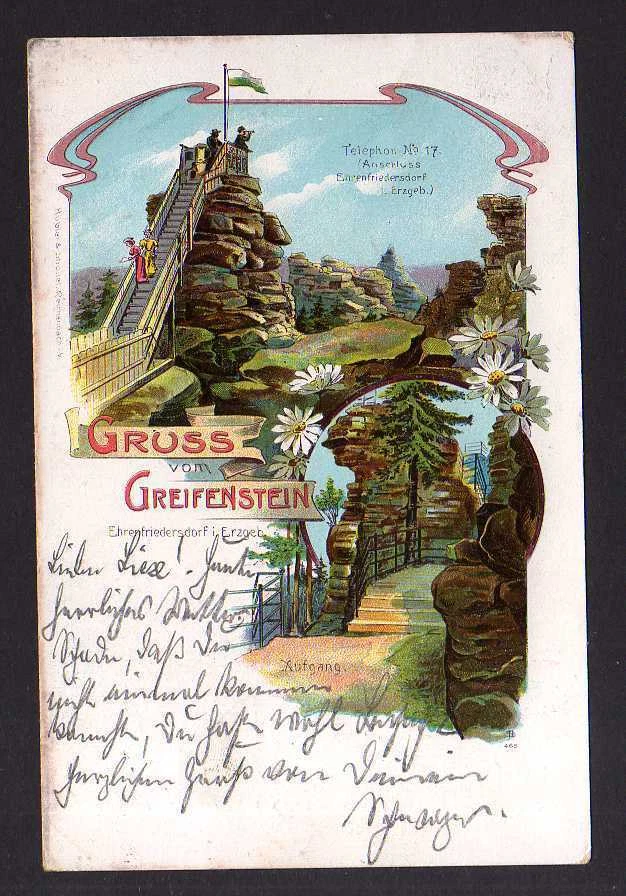 Telephon No 17.
(Anschluss
Ehrenfriedersdorf
i. Erzgeb.)
GRUSS
vom
GREIFENSTEIN
Ehrenfriedersdorf i. Erzgeb.
Aufgang.
Liebe Liese! Heute
herrliches Wetter.
Schade, daß Du
nicht einmal kommen
konntest, Du hast wohl
herzlichen Gruß von Deinem
Schwager.
468